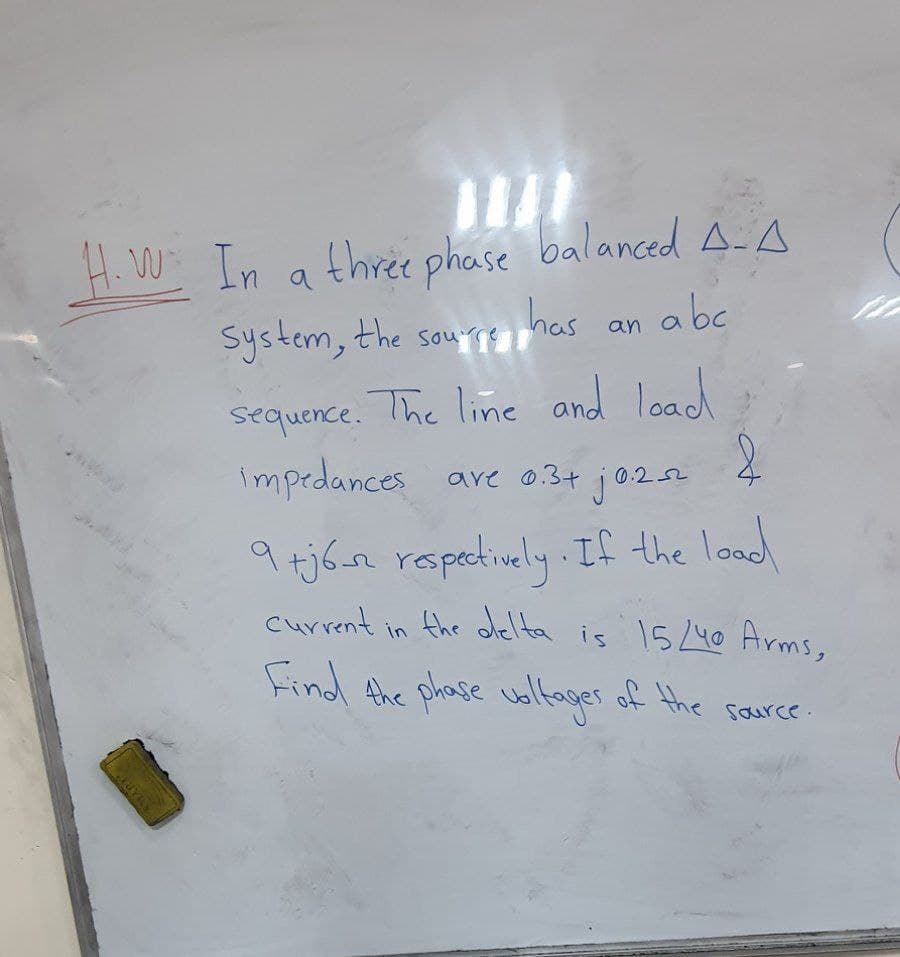 H.W In a three phase balanced Δ-Δ
system, the source has an abc
sequence. The line and load
impedances are 0.3+j0.2Ω &
9+j6Ω respectively. If the load
current in the delta is 15∠40 Arms,
Find the phase voltages of the source.